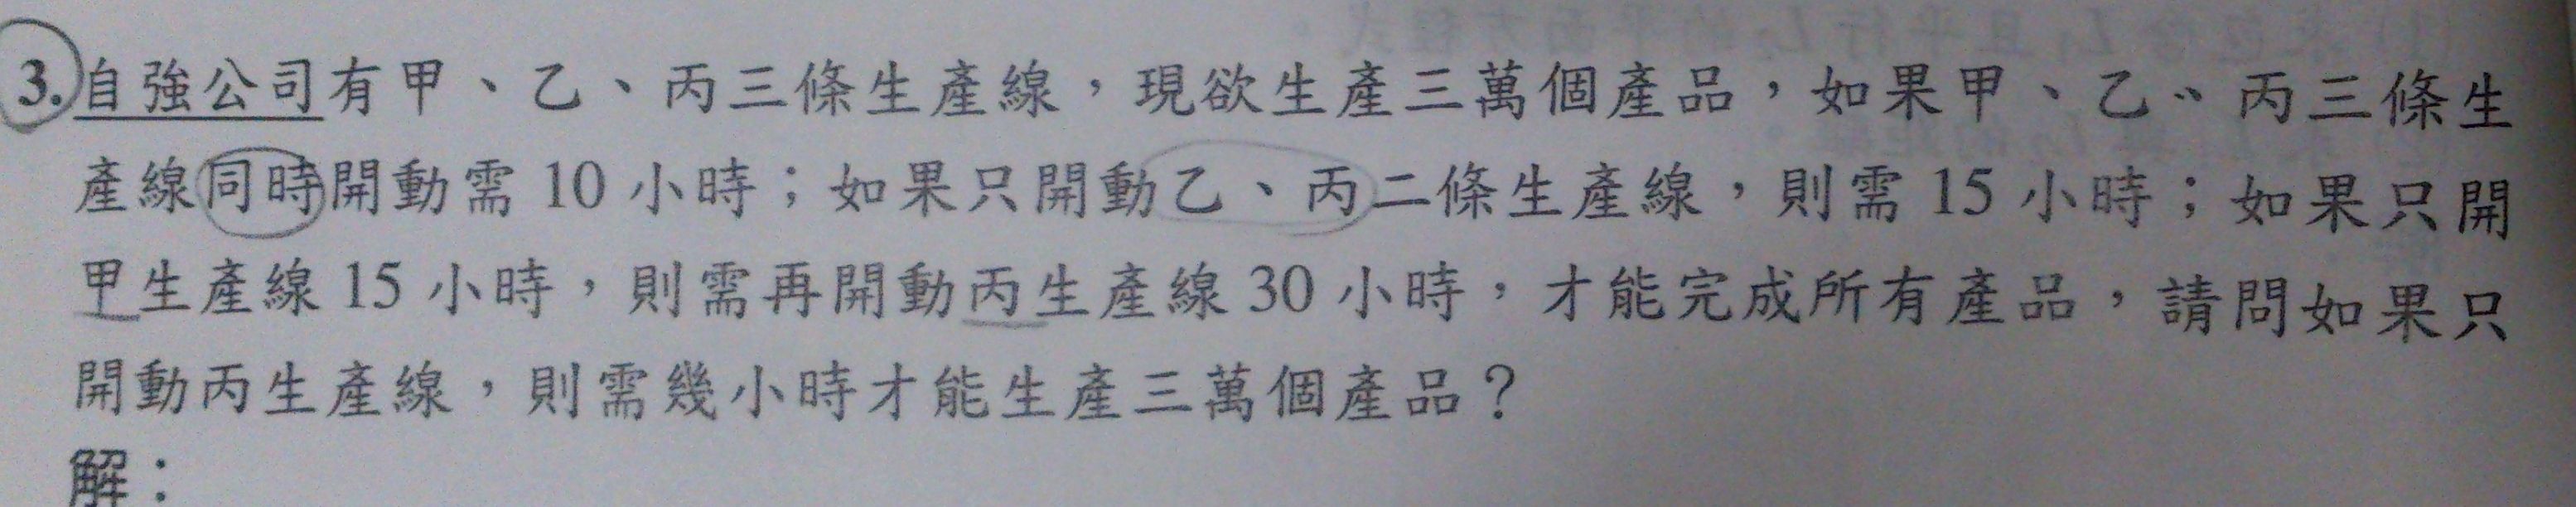 3.自強公司有甲、乙、丙三條生產線，現欲生產三萬個產品，如果甲、乙、丙三條生
產線同時開動需 10 小時；如果只開動乙、丙二條生產線，則需 15 小時；如果只開
甲生產線 15 小時，則需再開動丙生產線 30 小時，才能完成所有產品，請問如果只
開動丙生產線，則需幾小時才能生產三萬個產品？
解：